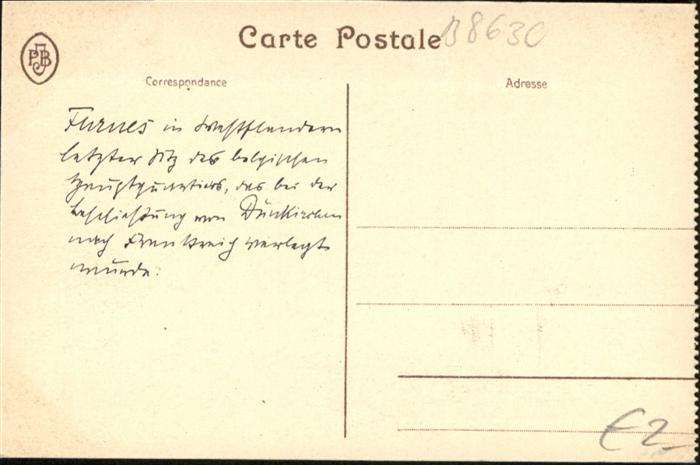 PJB
Carte Postale
B863C
Correspondance
Adresse
Furnes in Westflandern
letzter Sitz des belgischen
Hauptquartiers, das bei der
Beschießung von Dünkirchen
nach Frankreich verlegt
wurde.
€2